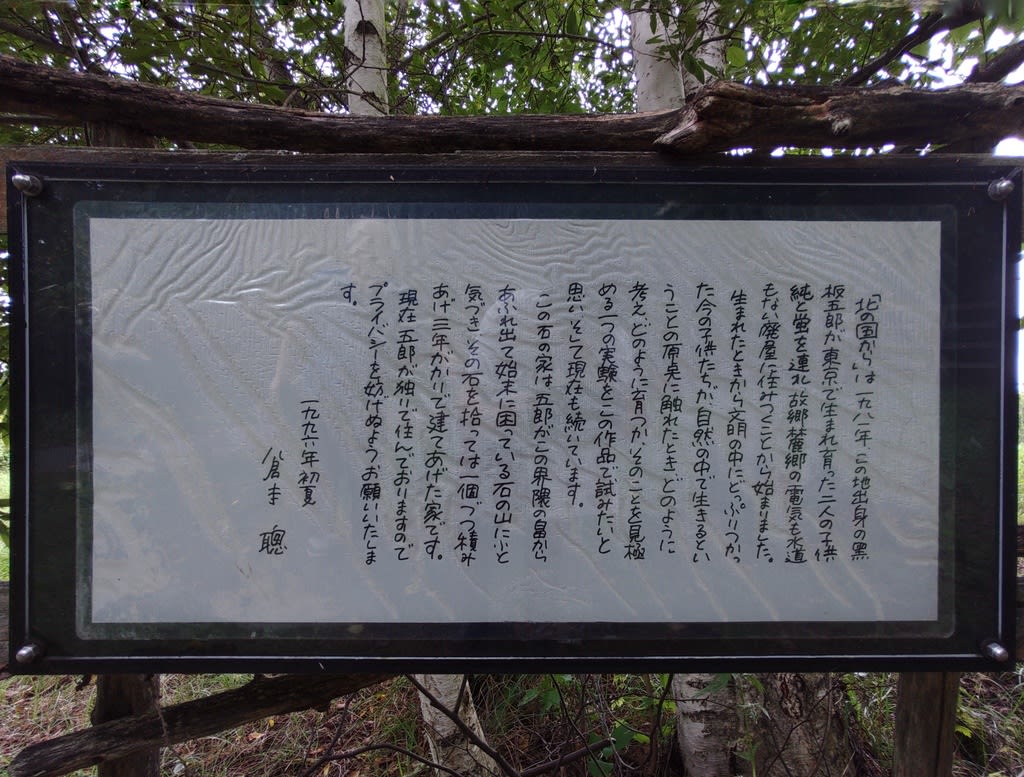 「北の国から」は 一九八一年、この地出身の黒
板五郎が 東京で生まれ育った二人の子供
純と蛍を連れ、故郷麓郷の電気も水道
もない廃屋に住みつくことから始まりました。
生まれたときから文明の中にどっぷりつかっ
た今の子供たちが、自然の中で生きるとい
うことの原点に触れたとき、どのように
考え、どのように育つか、そのことを見極
める一つの実験をこの作品で試みたいと
思い、そして現在も続いています。
この石の家は、五郎がこの界隈の畠から
あふれ出て始末に困っている石の山にふと
気づき、その石を拾っては一個づつ積み
あげ 三年がかりで建てあげた家です。
現在 五郎が独りで住んでおりますので
プライバシーを妨げぬようお願いいたしま
す。
一九九一年初夏
倉本 聰